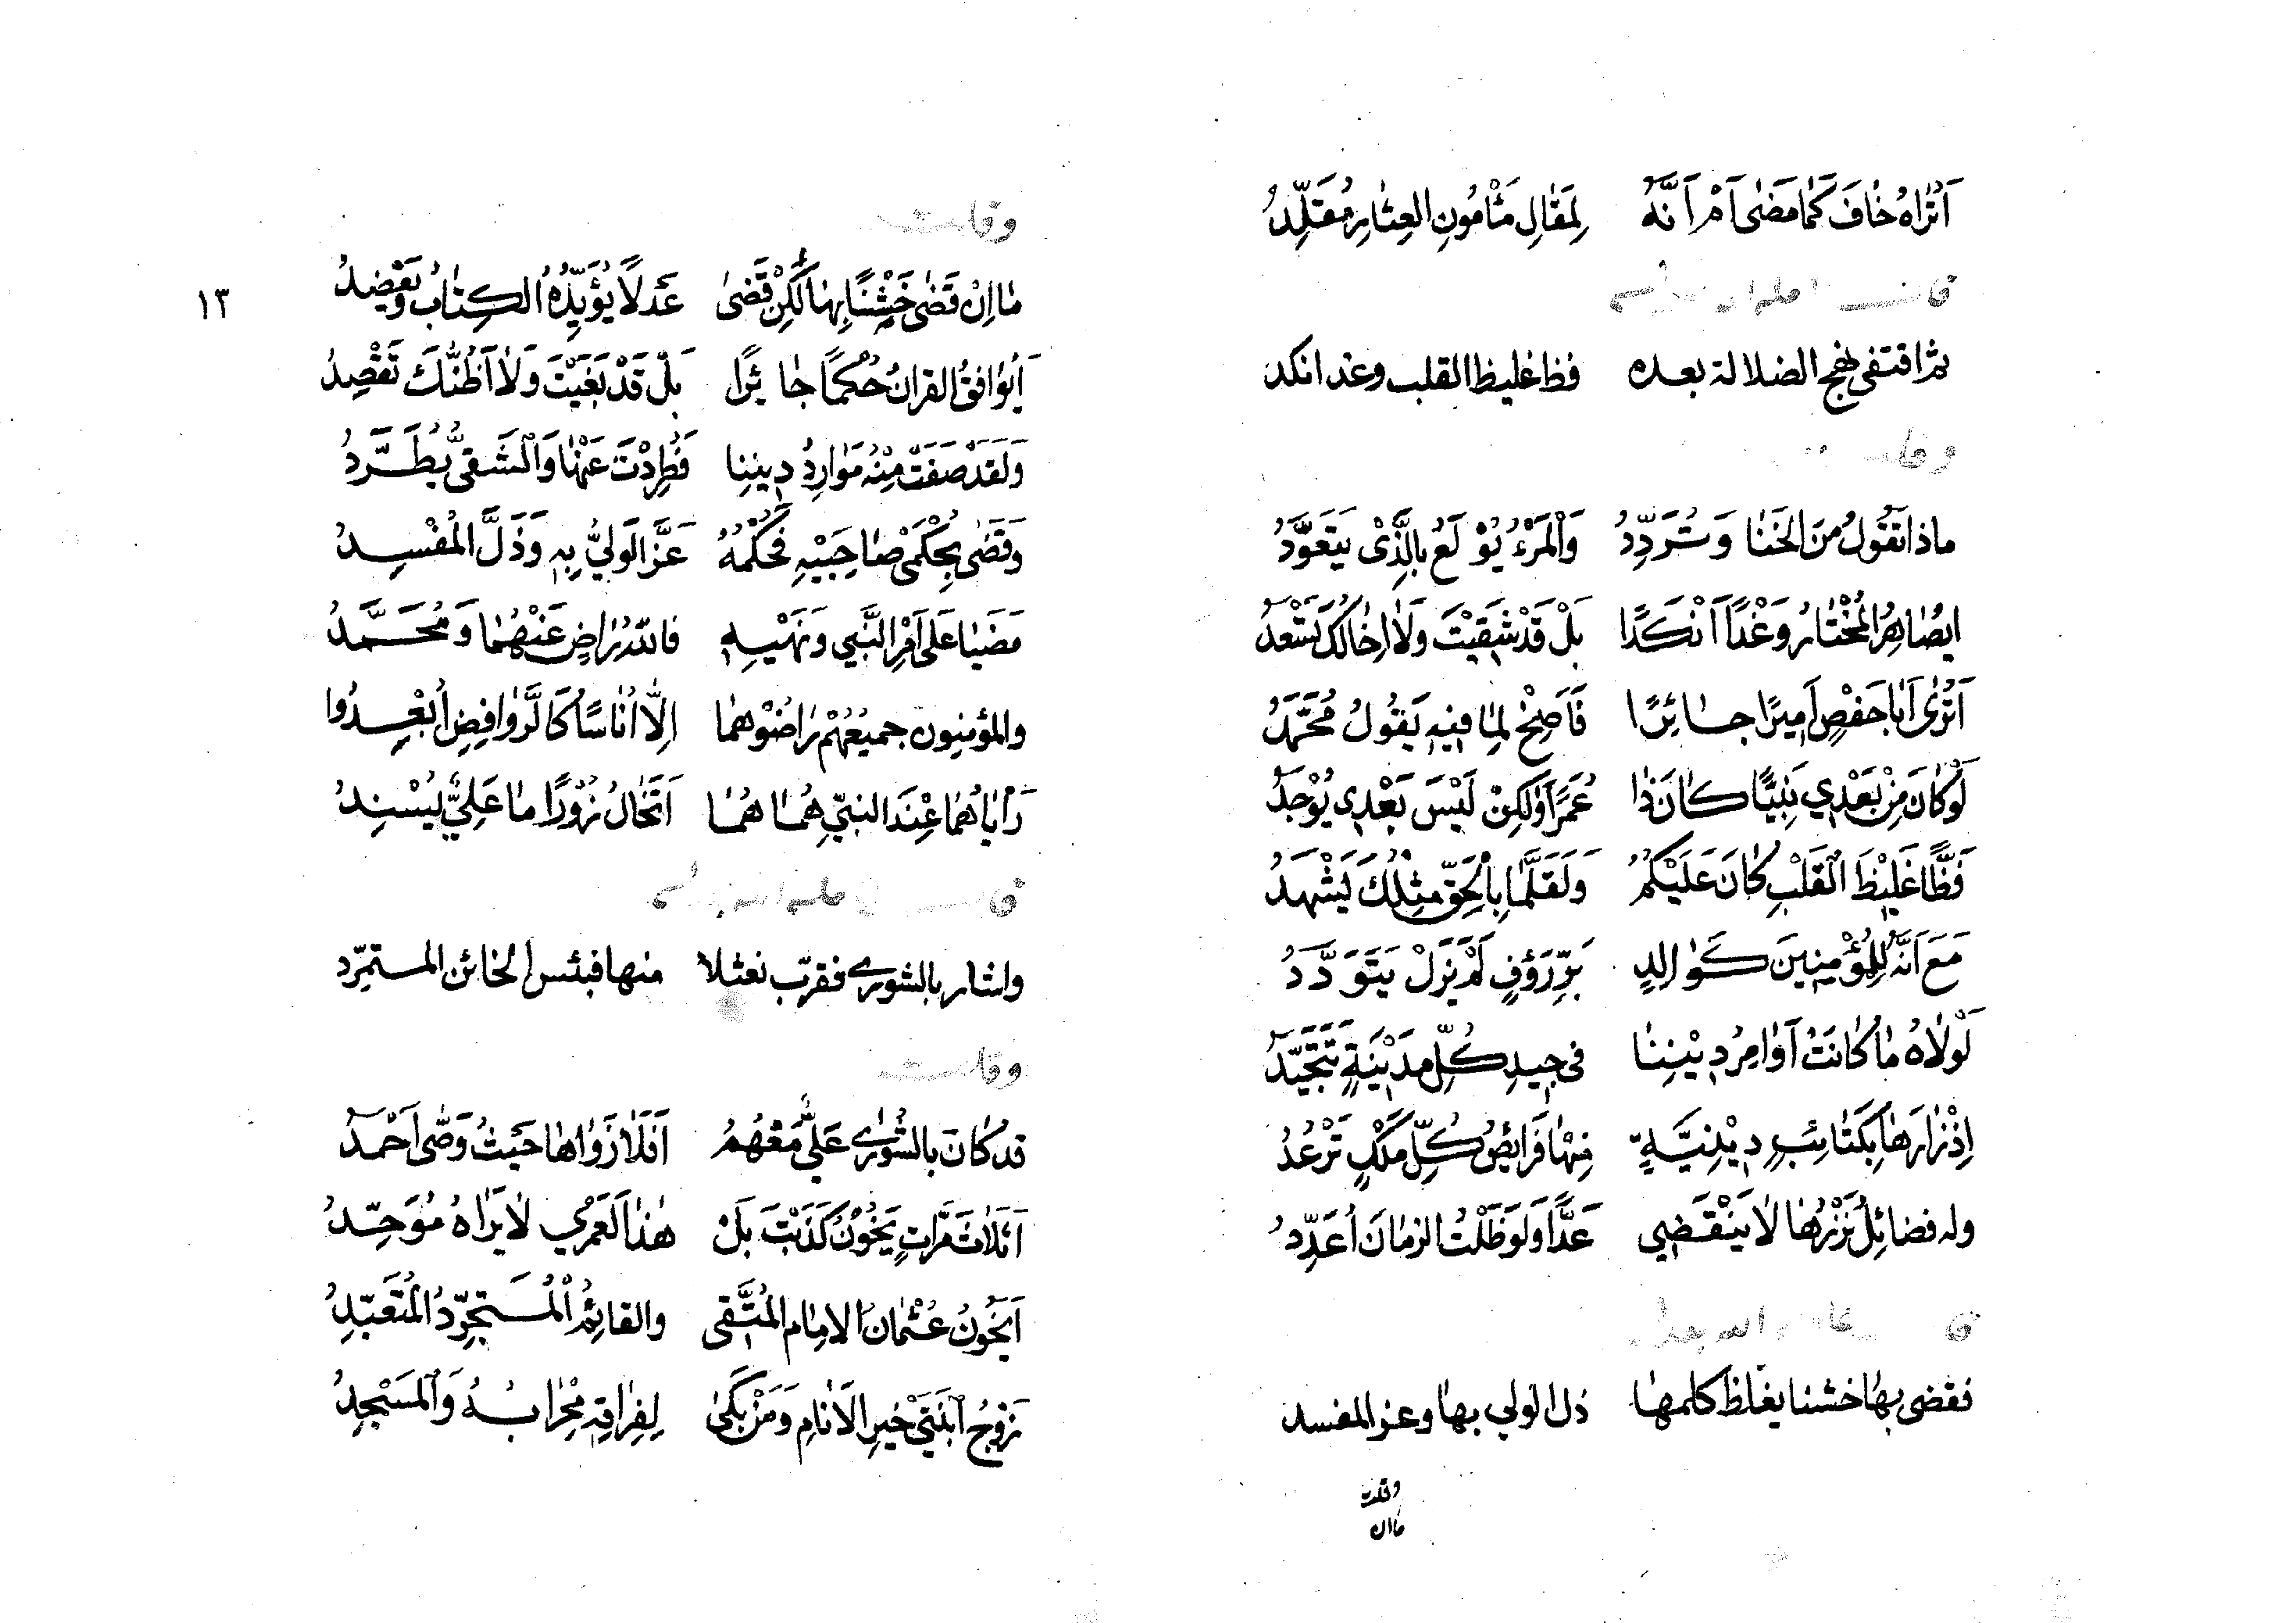 اَتُرَاهُ خَافَ كَمَا مَضٰى اَمْ اَنَّهُ لِمَقَالِ مَأمُونِ العِثَارِ مُقَلِّدُ
ثم اقتفى نهج الضلالة بعده فظا غليظ القلب وغد انكد
وقلت
ماذا تَقُولُ مِنَ الخَنَا وَتُرَدِّدُ وَالْمَرْءُ يُوْلَعُ بِالَّذِىْ يَتَعَوَّدُ
ايُصَاهِرُ المُخْتَارُ وَغْدًا اَنْكَدًا بَلْ قَدْ شَقِيْتَ وَلَا اِخَالُكَ تَسْعَدُ
اَتُرٰى اَبَا حَفْصٍ اَمِيرًا جَائِرًا فَاَصِخْ لِمَا فِيْهِ يَقُولُ مُحَمَّدُ
لَوْ كَانَ مِنْ بَعْدِي نَبِيًّا كَانَ ذَا عُمَرًا وَلٰكِنْ لَيْسَ بَعْدِى يُوْجَدُ
فَظًّا غَلِيْظَ الْقَلْبِ كَانَ عَلَيْكُمُ وَلَقَلَّمَا بِالْحَقِّ مِثْلُكَ يَشْهَدُ
مَعَ اَنَّهُ لِلْمُؤْمِنِينَ كَوَالِدٍ بَرٍّ رَؤُفٍ لَمْ يَزَلْ يَتَوَدَّدُ
لَوْلَاهُ مَا كَانَتْ اَوَامِرُ دِيْنِنَا فى جِيدِ كُلِّ مَدِيْنَةٍ تَتَجَيَّدُ
اِذْ زَارَهَا بِكَتَائِبٍ دِيْنِيَّةٍ مِنْهَا فَرَائِصُ كُلِّ مَلْكٍ تَرْعُدُ
وله فضائِلُ نَزْرُهَا لَا يَنْقَضِي عَدًّا وَلَو ظَلْتُ الزمَانَ اُعَدِّدُ
فقضى بها خشنا يغلظ كلمها ذل الولي بها وعز المفسد
وقلت
ما ان
وقلت
١٣
مَا اِنْ قَضٰى خَشْنًا بِهَا لٰكِنْ قَضىٰ عَدْلًا يُؤَيِّدُهُ الكِتَابُ وَيَعْضِدُ
اَيُوَافِقُ القرانُ حُكْمًا جَائِرًا بَلْ قَدْ بَغَيْتَ وَلَا اَظُنُّكَ تَقْصِدُ
وَلَقَدْ صَفَتْ مِنْهُ مَوَارِدُ دِيْنِنا فَطُرِدْتَ عَنْهَا وَالْشَقِيُّ يُطَرَّدُ
وَقَضٰى بِحُكْمَىْ صَاحِبَيْهِ فَحُكْمُهُ عَزَّ الوَلِيُّ بِهِ وَذَلَّ المُفْسِدُ
مَضَيَا عَلىٰ اَمْرِ النَّبِي وَنَهْيِهِ فَاللّٰهُ رَاضٍ عَنْهُمَا وَمُحَمَّدُ
والمؤمِنِون جميعُهُمْ رَاضُوْهمَا اِلَّا اُنَاسًا كَالرَّوَافِضِ اُبْعِدُوا
رَأيَاهُمَا عِنْدَ النبيِّ هُمَا هُمَا اَتَخَالُ زُوْرًا مَا عَلِيٌّ يُسْنِدُ
واشار بالشورى فقرّب نعثلا منها فبئس الخائن المستمرّد
وقلت
قد كَانَ بالشُّورٰى عَلِيٌّ مَعْهُمُ اَفَلَا زَوَاهَا حَيْثُ وَصّٰى اَحْمَدُ
اَثَلَاثَ مَرَّاتٍ يَخُوْنُ كَذَبْتَ بَلْ هٰذَا لَعَمْرِي لَا يَرَاهُ مُوَحِّدُ
اَيَخُونُ عُثْمَانُ الامَامُ المُتَّقى والقائِمُ الْمُسْتَجْرِدُ المُتَعَبِّدُ
زَوْجُ ابْنَتَيْ خَيْرِ الاَنَامِ وَمَنْ بَكىٰ لِفِرَاقِهِ مِحْرَابُهُ وَالْمَسْجِدُ